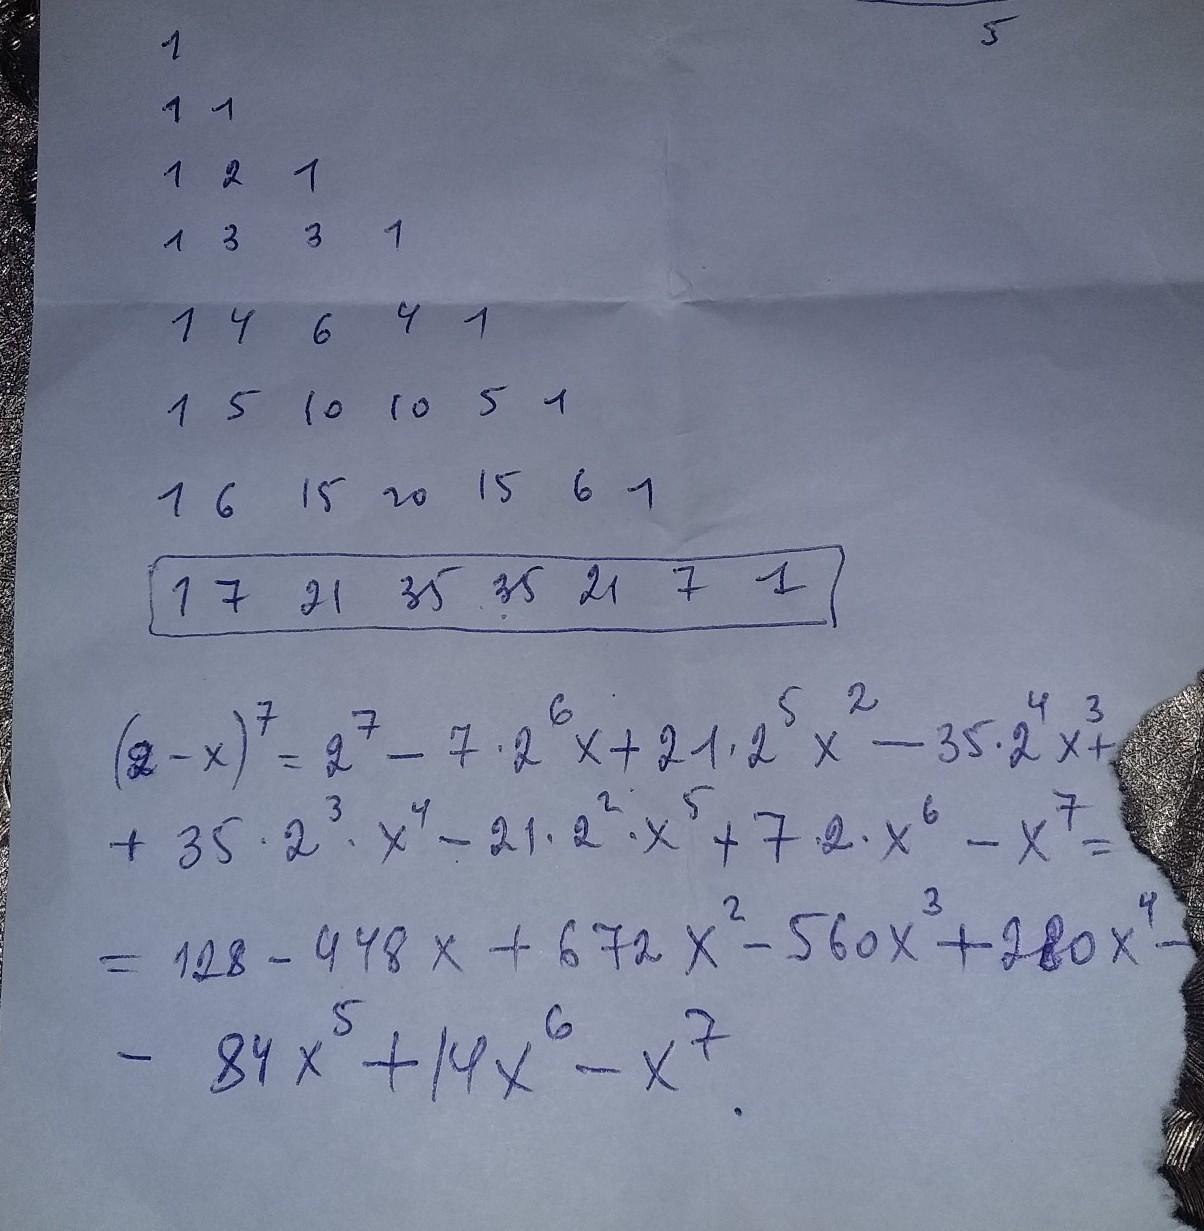 5
1
1 1
1 2 1
1 3 3 1
1 4 6 4 1
1 5 10 10 5 1
1 6 15 20 15 6 1
1 7 21 35 35 21 7 1
(2-x)⁷ = 2⁷ - 7·2⁶x + 21·2⁵x² - 35·2⁴x³+
+ 35·2³·x⁴ - 21·2²·x⁵ + 7·2·x⁶ - x⁷ =
= 128 - 448x + 672x² - 560x³ + 280x⁴ -
- 84x⁵ + 14x⁶ - x⁷.